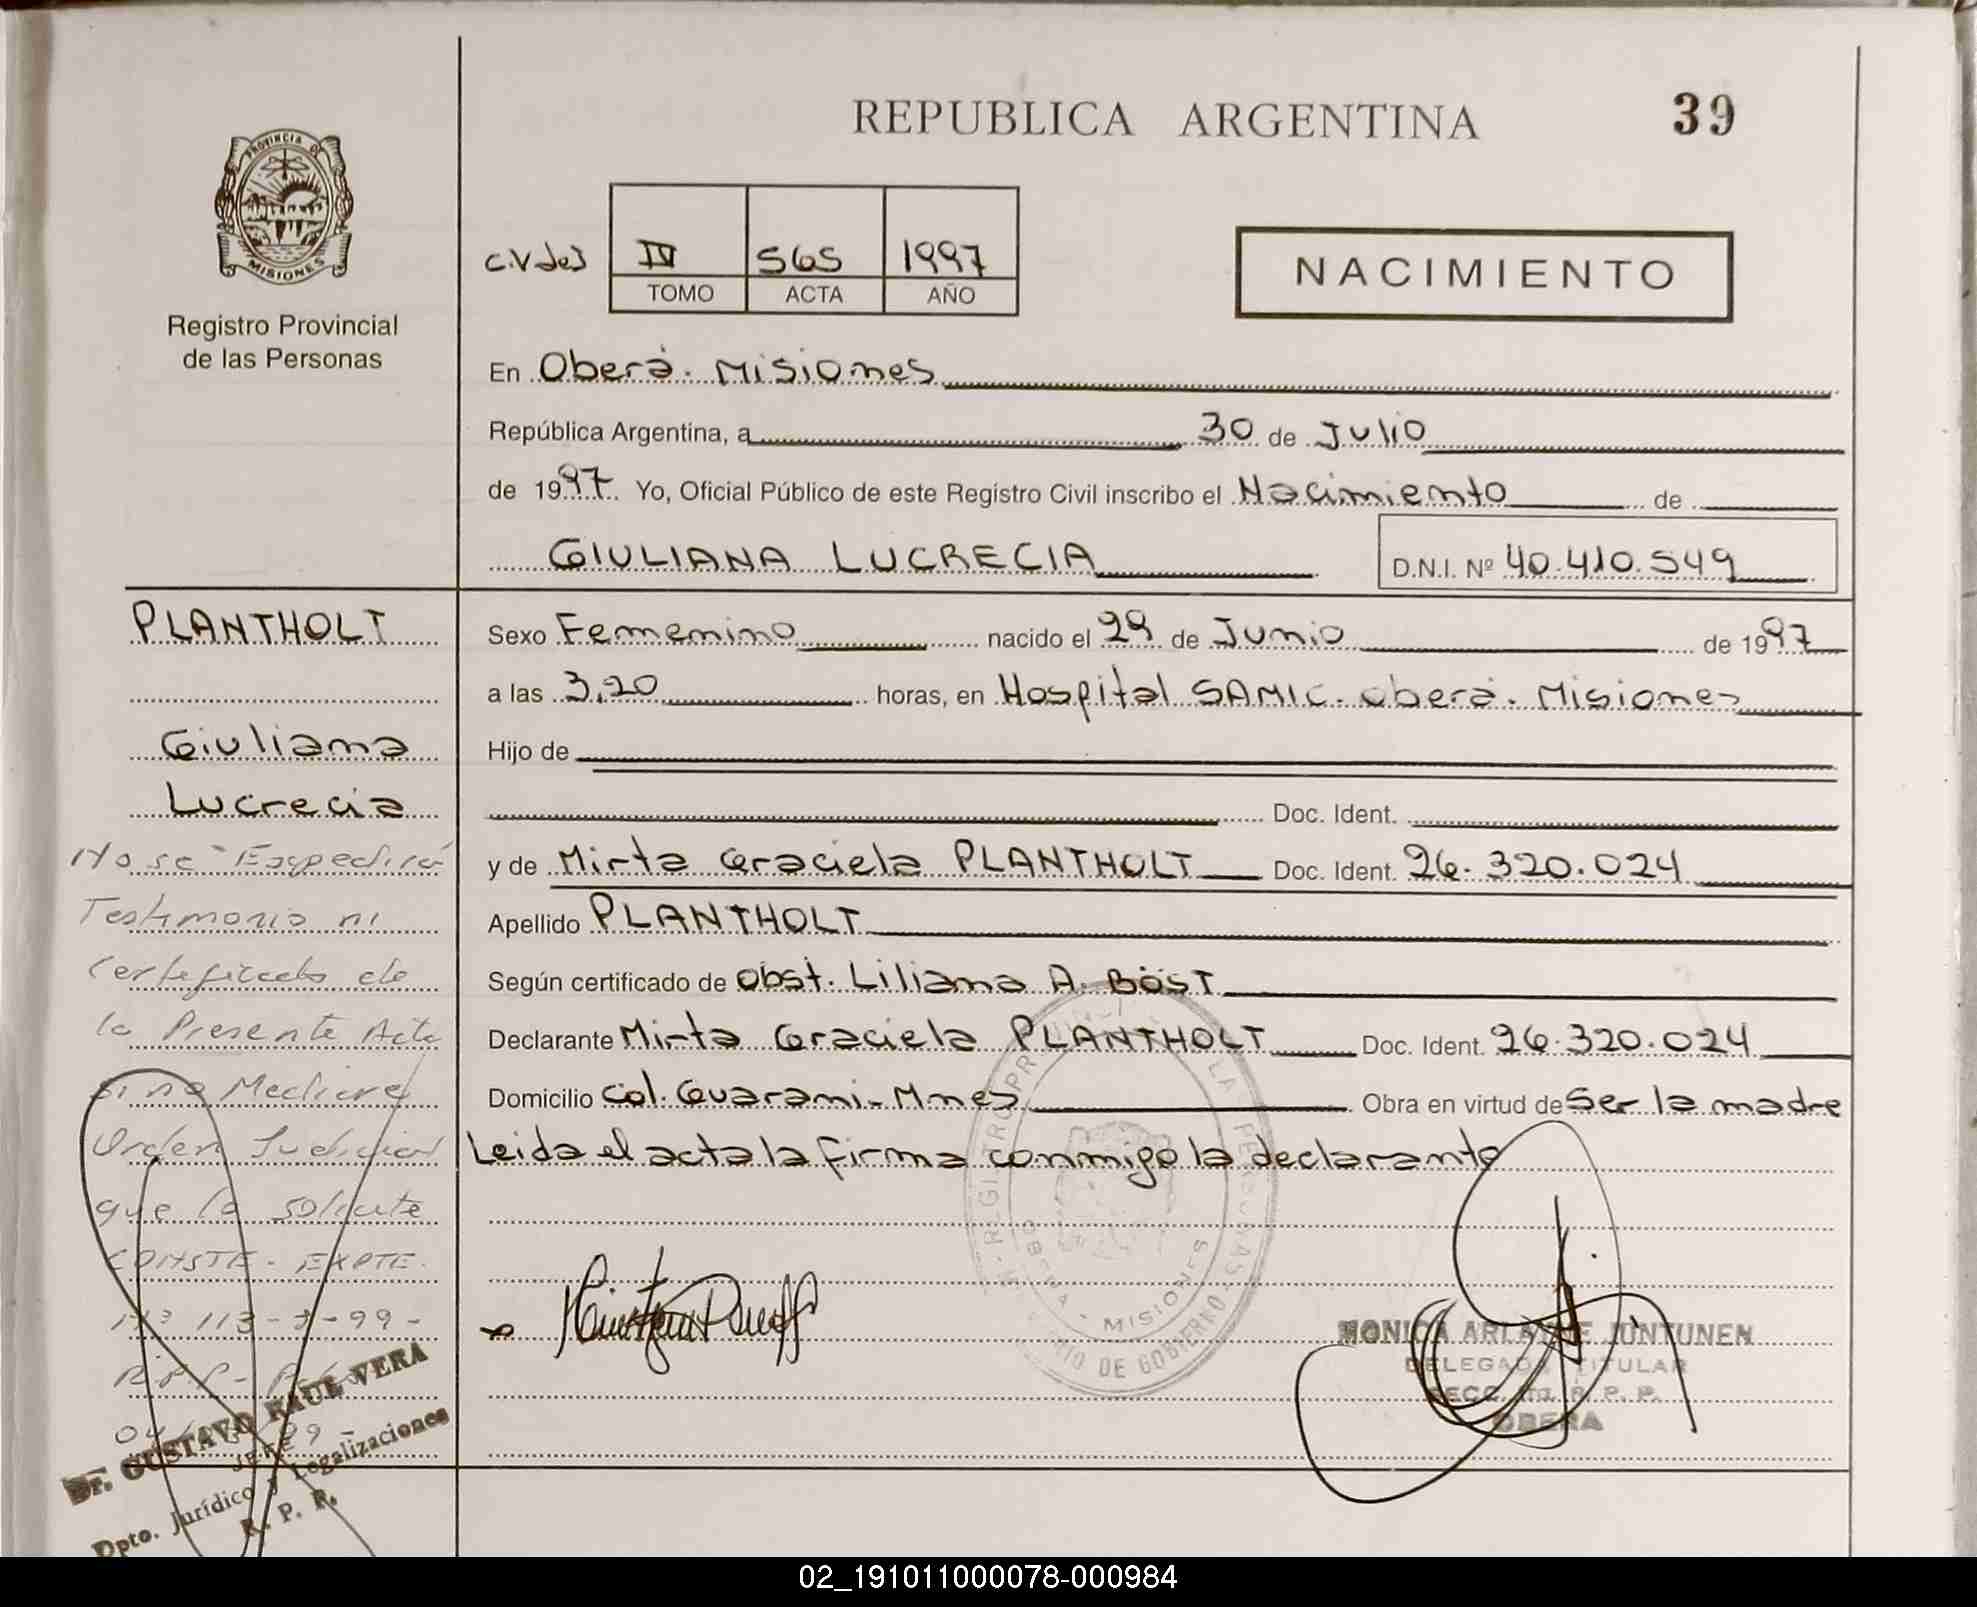 REPUBLICA ARGENTINA
39
PROVINCIA DE
MISIONES
Registro Provincial
de las Personas
IV 565 1997
TOMO ACTA AÑO
NACIMIENTO
En Oberá. Misiones
República Argentina, a 30 de Julio
de 1997 Yo, Oficial Público de este Registro Civil inscribo el Nacimiento de
GIULIANA LUCRECIA
D.N.I. Nº 40.410.549
PLANTHOLT
Giuliana
Lucrecia
Sexo Femenino nacido el 29 de Junio de 1997
a las 3,20 horas, en Hospital SAMIC. Oberá. Misiones
Hijo de
Doc. Ident.
y de Mirta Graciela PLANTHOLT Doc. Ident. 26.320.024
Apellido PLANTHOLT
Según certificado de Obst. Liliana A. BÖST
Declarante Mirta Graciela PLANTHOLT Doc. Ident. 26.320.024
Domicilio Col. Guarani - Mnes Obra en virtud de Ser la madre
Leida el acta la firma conmigo la declarante
No se Expedirá
Testimonio ni
Certificado de
la Presente Acta
si no Mediare
Orden Judicial
que lo solicite
CONSTE - EXPTE.
Nº 113 - 99 -
Dr. GUSTAVO RAUL VERA
JEFE
Dpto. Jurídico y Legalizaciones
R. P. P.
OBERA - MISIONES
MONICA ARLAINE JUNTUNEN
DELEGADA TITULAR
SECC. R. P. P.
OBERA
02_191011000078-000984